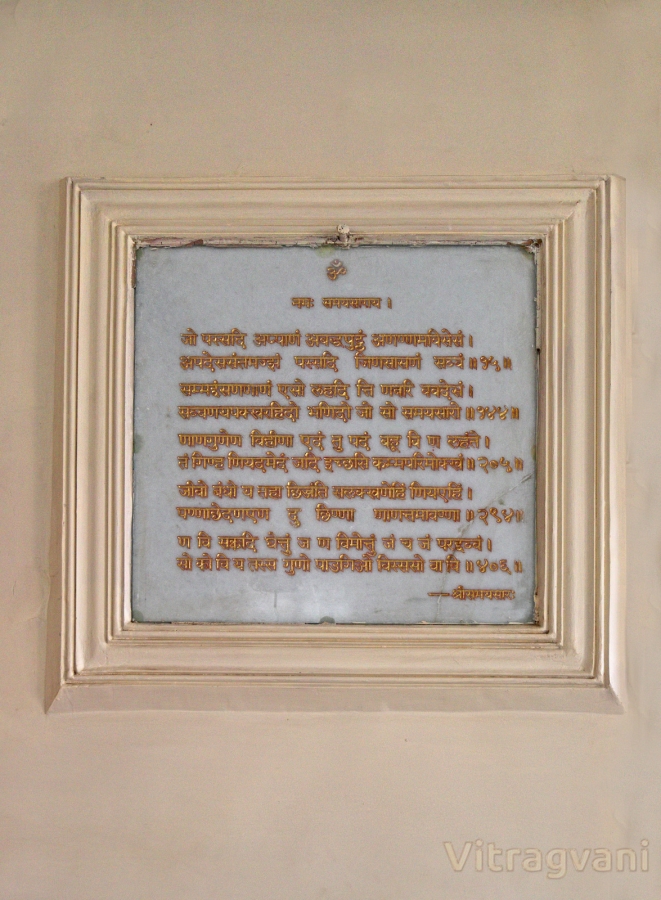 ॐ
नमः समयसाराय ।
जो पस्सदि अप्पाणं अबद्धपुट्ठं अणण्णमविसेसं ।
अपदेससंतमज्झं पस्सदि जिणसासणं सव्वं ॥ १५ ॥
सम्मद्दंसणणाणं एसो लहदि त्ति णवरि ववदेसं ।
सव्वणयपक्खरहिदो भणिदो जो सो समयसारो ॥ १४४ ॥
णाणगुणेण विहीणा एदं तु पदं बहू वि ण लहंते ।
तं गिण्ह णियदमेदं जदि इच्छसि कम्मपरिमोक्खं ॥ २०५ ॥
जीवो बंधो य तहा छिज्जंति सलक्खणेहिं णियएहिं ।
पण्णाछेदणएण दु छिण्णा णाणत्तमावण्णा ॥ २९४ ॥
ण वि सक्कदि घेत्तुं जं ण विमोत्तुं जं च जं परद्दव्वं ।
सो को वि य तस्स गुणो पाउगिओ विस्ससो वा वि ॥ ४०६ ॥
—श्रीसमयसारः
Vitragvani